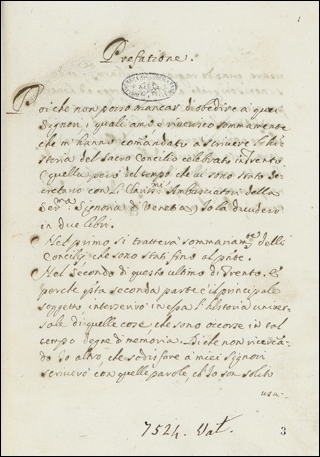 1
Prefatione.
Poiche non posso mancar di obedire a quei
Signori, quali amo e riverisco sommamente
che m'hanno comandato a scrivere l'his-
toria del Sacro Concilio celebrato in Trento
(quella però del tempo che vi sono stato Se-
cretario con li Clariss.mi Ambasciatori della
Ser.ma Signoria di Venetia) Io la dividerò
in due libri.
Nel primo si tratterà sommariam.te delli
Concilij che sono stati fino al pnte.
Nel Secondo di questo ultimo di Trento. E
perche q.ta seconda parte è il principale
soggetto inserirò in essa l'historia univer-
sale di quelle cose, che sono occorse in tal
tempo degne di memoria. Di che non ricercã-
do Io altro, che sodisfare a miei Signori
scriverò con quelle parole, ch'Io son solito
usa-
7524. Vat.
3